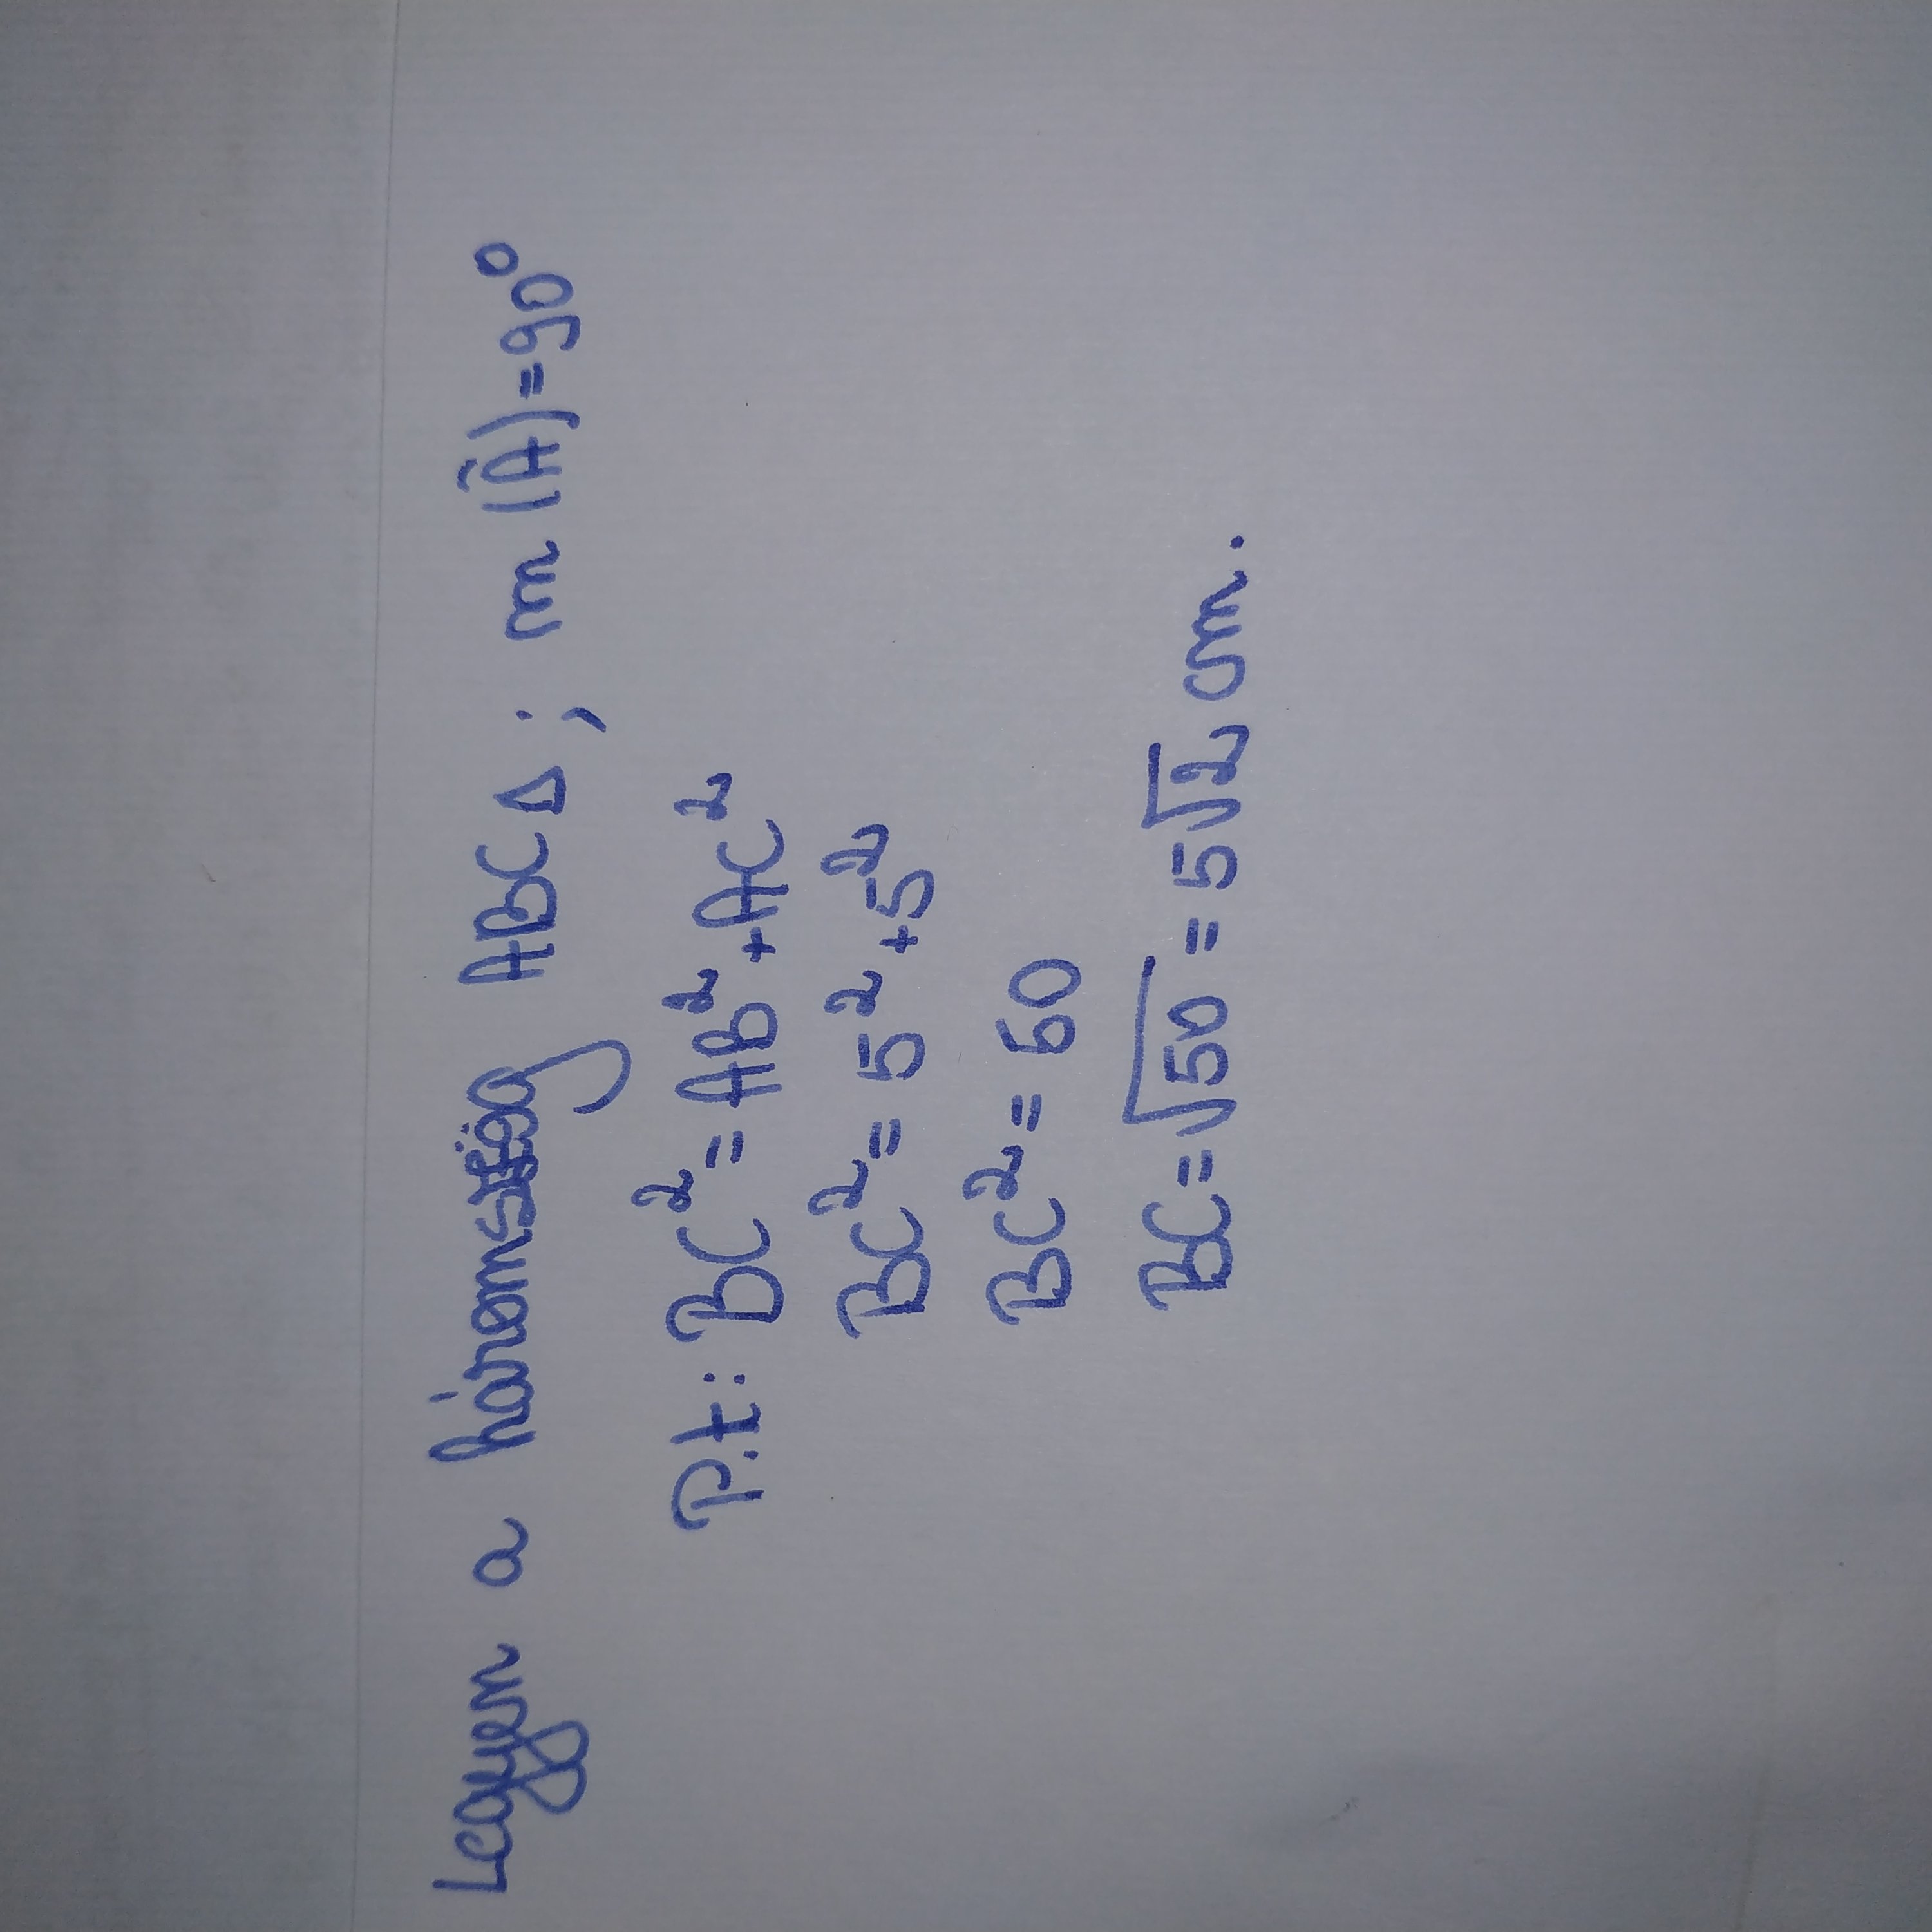 Legyen a háromszög ABC Δ; m(Â)=90°
P.t: BC²=AB²+AC²
BC²=5²+5²
BC²=50
BC=√50=5√2 cm.